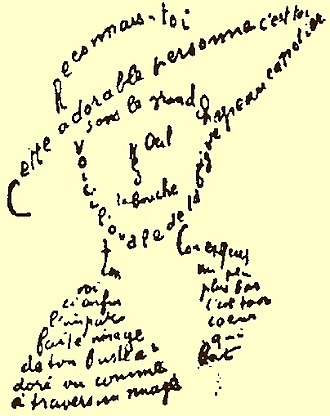 Reconnais-toi
Cette adorable personne c'est toi
Sous le grand chapeau canotier
Oeil
Nez
la bouche
Voici l'ovale de ta figure
ton
Cou exquis
voi
ci enfin
l'impar
faite image
de ton buste a
doré vu comme
à travers un nuage
un peu
plus bas
c'est ton
coeur
qui
bat